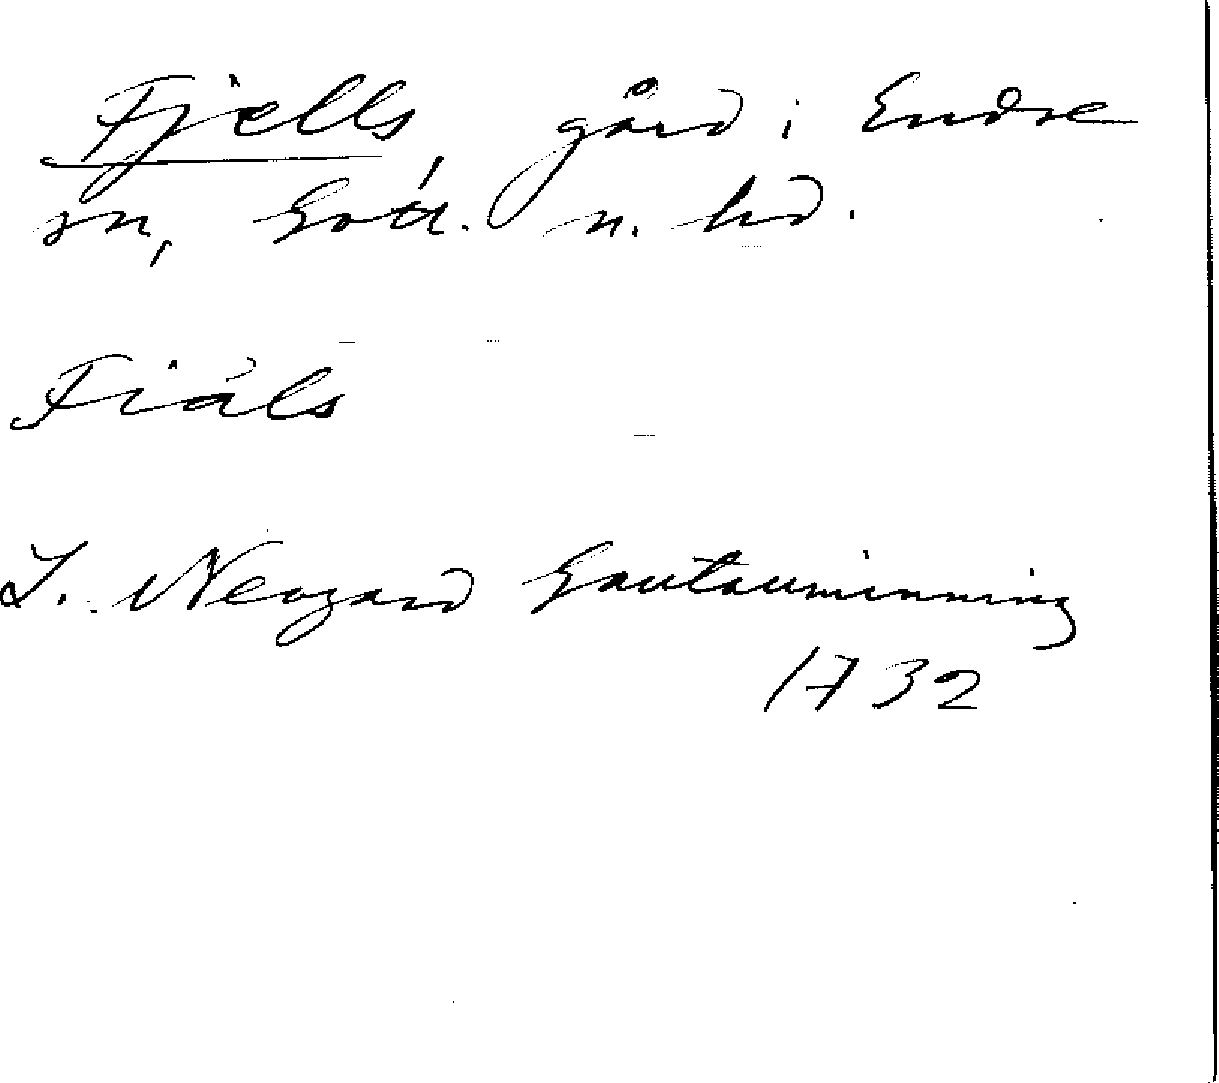 Fjells, gård i Endre
sn, Gotl. n. hd.
Fiäls
L. Neogard Gautauminning
1732